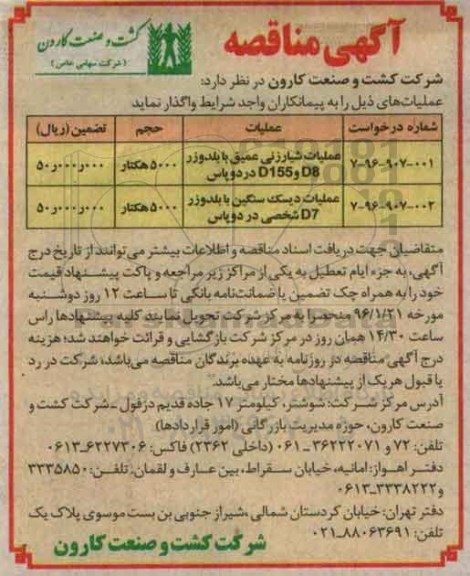 آگهی مناقصه
کشت و صنعت کارون
(شرکت سهامی خاص)
شرکت کشت و صنعت کارون در نظر دارد:
عملیات‌های ذیل را به پیمانکاران واجد شرایط واگذار نماید
شماره درخواست عملیات حجم تضمین (ریال)
۷-۹۶-۹۰۷-۰۰۱ عملیات شیارزنی عمیق با بلدوزر D8 و D155 در دو پاس ۵۰۰۰ هکتار ۵۰,۰۰۰,۰۰۰
۷-۹۶-۹۰۷-۰۰۲ عملیات دیسک سنگین با بلدوزر D7 شخصی در دو پاس ۵۰۰۰ هکتار ۵۰,۰۰۰,۰۰۰
متقاضیان جهت دریافت اسناد مناقصه و اطلاعات بیشتر می‌توانند از تاریخ درج
آگهی، به جزء ایام تعطیل به یکی از مراکز زیر مراجعه و پاکت پیشنهاد قیمت
خود را به همراه چک تضمین یا ضمانت‌نامه بانکی تا ساعت ۱۲ روز دوشنبه
مورخه ۹۶/۱/۲۱ منحصرا به مرکز شرکت تحویل نمایند کلیه پیشنهادها راس
ساعت ۱۴/۳۰ همان روز در مرکز شرکت بازگشایی و قرائت خواهند شد؛ هزینه
درج آگهی مناقصه در روزنامه به عهده برندگان مناقصه می‌باشد، شرکت در رد
یا قبول هر یک از پیشنهادها مختار می‌باشد.
آدرس مرکز شرکت: شوشتر، کیلومتر ۱۷ جاده قدیم دزفول ـ شرکت کشت و
صنعت کارون، حوزه مدیریت بازرگانی (امور قراردادها)
تلفن: ۷۲ و ۳۶۲۲۲۰۷۱ - ۰۶۱ (داخلی ۲۳۶۲) فاکس: ۶۲۲۷۳۰۶-۰۶۱۳
دفتر اهواز: امانیه، خیابان سقراط، بین عارف و لقمان, تلفن: ۳۳۳۵۸۵۰
و ۳۳۳۸۲۲۲-۰۶۱۳
دفتر تهران: خیابان کردستان شمالی ـ شیراز جنوبی بن بست موسوی پلاک یک
تلفن: ۸۸۰۶۳۶۹۱-۰۲۱
شرکت کشت و صنعت کارون